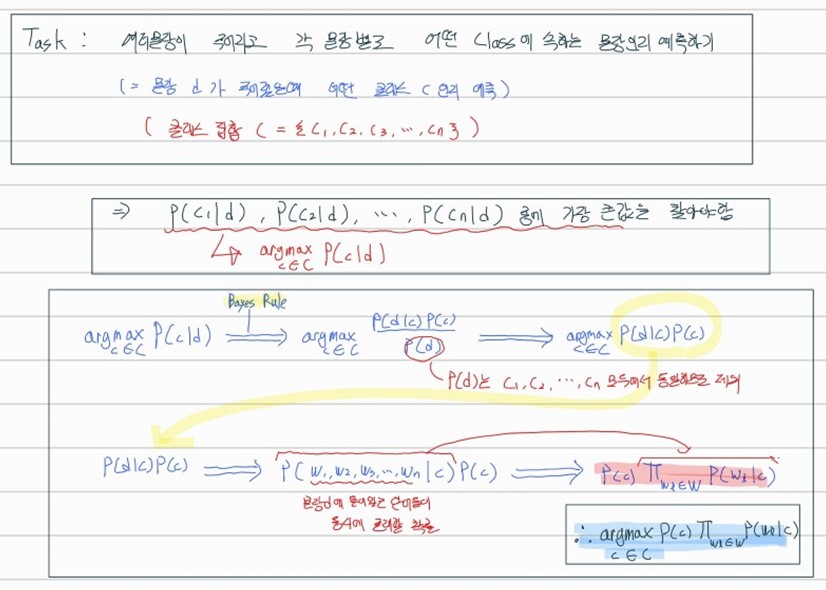 Task : 여러문장이 주어지고 각 문장별로 어떤 Class에 속하는 문장인지 예측하기
(= 문장 d가 주어졌을때 어떤 클래스 C 인지 예측)
( 클래스 집합 C = { C₁, C₂, C₃, ⋯, Cn } )
⇒ P(C₁|d), P(C₂|d), ⋯, P(Cn|d) 중에 가장 큰값을 찾아야함
↳ argmax c∈C P(c|d)
Bayes Rule
argmax c∈C P(c|d) ⇒ argmax c∈C P(d|c)P(c) / P(d) ⇒ argmax c∈C P(d|c)P(c)
P(d)는 C₁, C₂, ⋯, Cn 모두에서 동일하므로 제외
P(d|c)P(c) ⇒ P(w₁, w₂, w₃, ⋯, wn|c)P(c) ⇒ P(c) ∏ wi∈W P(wi|c)
문장에 들어있는 단어들이
동시에 출현할 확률
∴ argmax c∈C P(c) ∏ wi∈W P(wi|c)